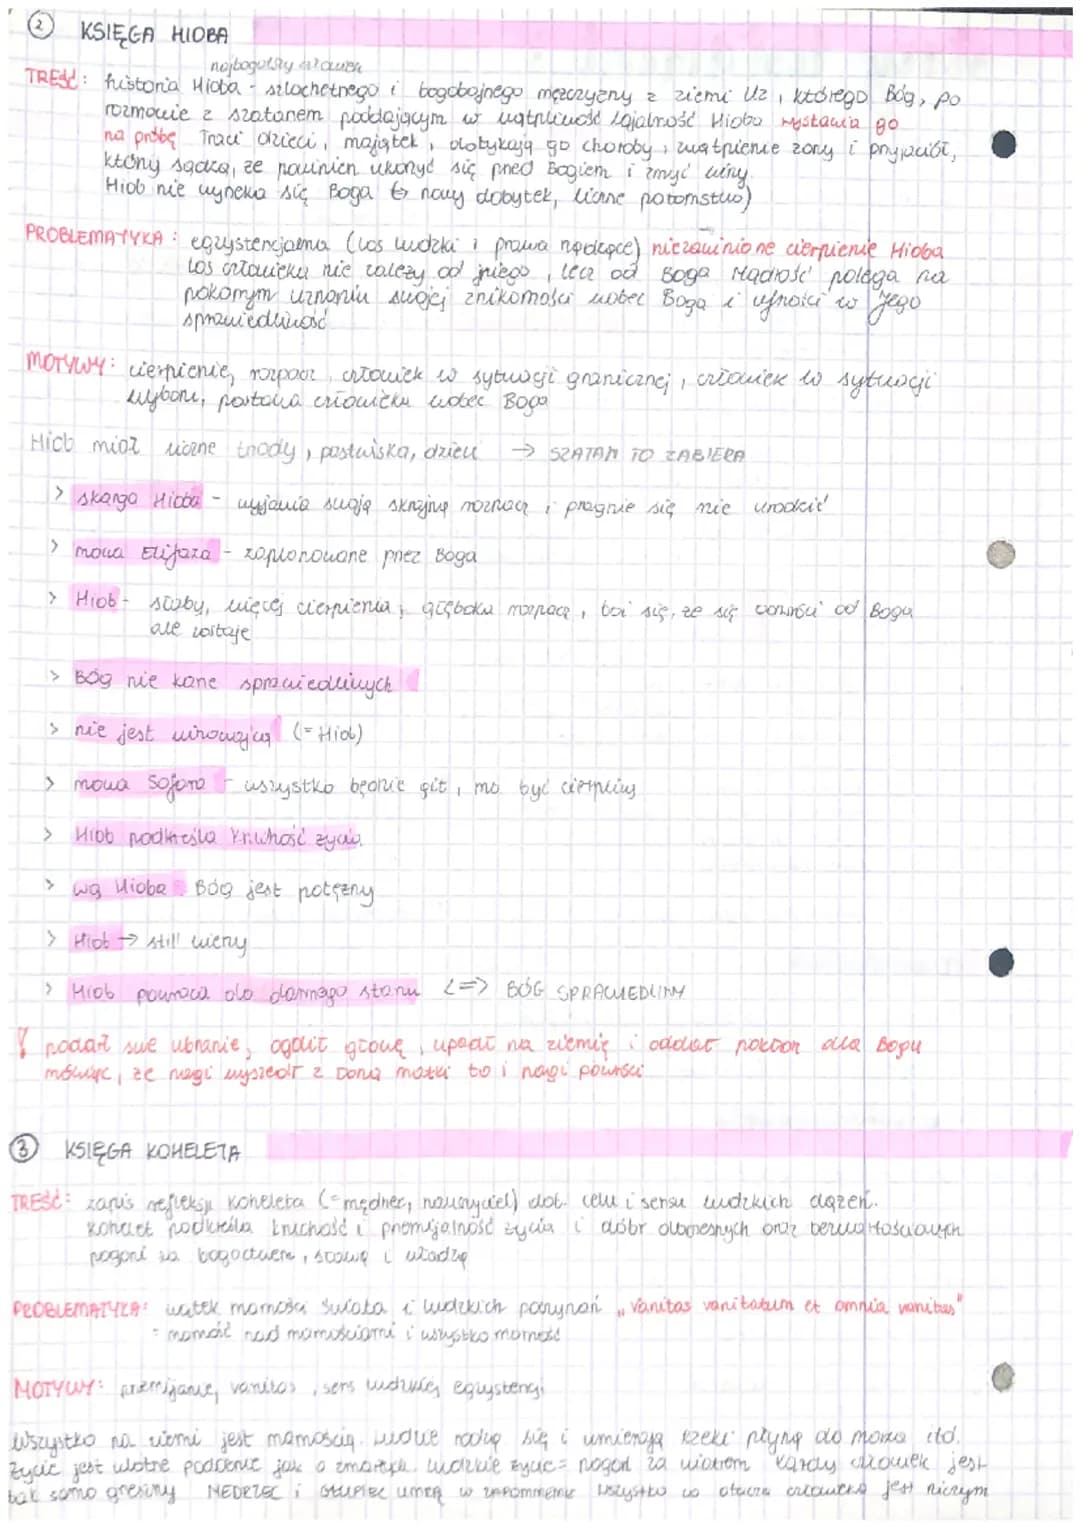 ② KSIĘGA HIOBA
najbogatszy człowiek
TREŚĆ: historia Hioba - szlachetnego i bogobojnego mężczyzny z ziemi Uz, którego Bóg, po
rozmowie z szatanem poddającym w wątpliwość lojalność Hioba wystawia go
na próbę Traci dzieci, majątek, dotykają go choroby, zwątpienie żony i przyjaciół,
którzy sądzą, że powinien ukorzyć się przed Bogiem i zmyć winy.
Hiob nie wyrzeka się Boga (→ nowy dobytek, liczne potomstwo)
PROBLEMATYKA: egzystencjalna (los ludzki i prawa rządzące) niezawinione cierpienie Hioba
Los człowieka nie zależy od niego, lecz od Boga Mądrość polega na
pokornym uznaniu swojej znikomości wobec Boga i ufności w Jego
sprawiedliwość
MOTYWY: cierpienie, rozpacz, człowiek w sytuacji granicznej, człowiek w sytuacji
wyboru, postawa człowieka wobec Boga
Hiob miał liczne trzody, pastwiska, dzieci → SZATAN TO ZABIERA
> skarga Hioba - wyjawia swoją skrajną rozpacz, pragnie się nie urodzić
> mowa Elifaza - zaplanowane przez Boga
> Hiob - słaby, więcej cierpienia, głęboka rozpacz, boi się, że się odwróci od Boga
ale zostaje
> Bóg nie karze sprawiedliwych
> nie jest winowajcą (= Hiob)
> mowa Sofara - wszystko będzie git, ma być cierpliwy
> Hiob podkreśla kruchość życia
> wg Hioba Bóg jest potężny
> Hiob → still wierny
> Hiob powraca do dawnego stanu <=> BÓG SPRAWIEDLIWY
! podarł swe ubranie, ogolił głowę, upadł na ziemię i oddał pokłon dla Bogu
mówiąc, że nagi wyszedł z łona matki to i nagi powróci
③ KSIĘGA KOHELETA
TREŚĆ: zapis refleksji Koheleta (=mędrzec, nauczyciel) dot. celu i sensu ludzkich dążeń.
Kohelet podkreśla kruchość i przemijalność życia i dóbr doczesnych oraz bezwartościowych
pogoni za bogactwem, sławą i władzą
PROBLEMATYKA: wątek marności świata i ludzkich poczynań „vanitas vanitatum et omnia vanitas"
= marność nad marnościami i wszystko marność
MOTYWY: przemijanie, vanitas, sens ludzkiej egzystencji
Wszystko na ziemi jest marnością. Ludzie rodzą się i umierają rzeki płyną do morza itd.
Życie jest ulotne podobnie jak o zmarłych. Ludzkie życie = pogoń za wiatrem Każdy człowiek jest
tak samo grzeszny MĘDRZEC i GŁUPIEC umrą w zapomnienie Wszystko co otacza człowieka jest niczym